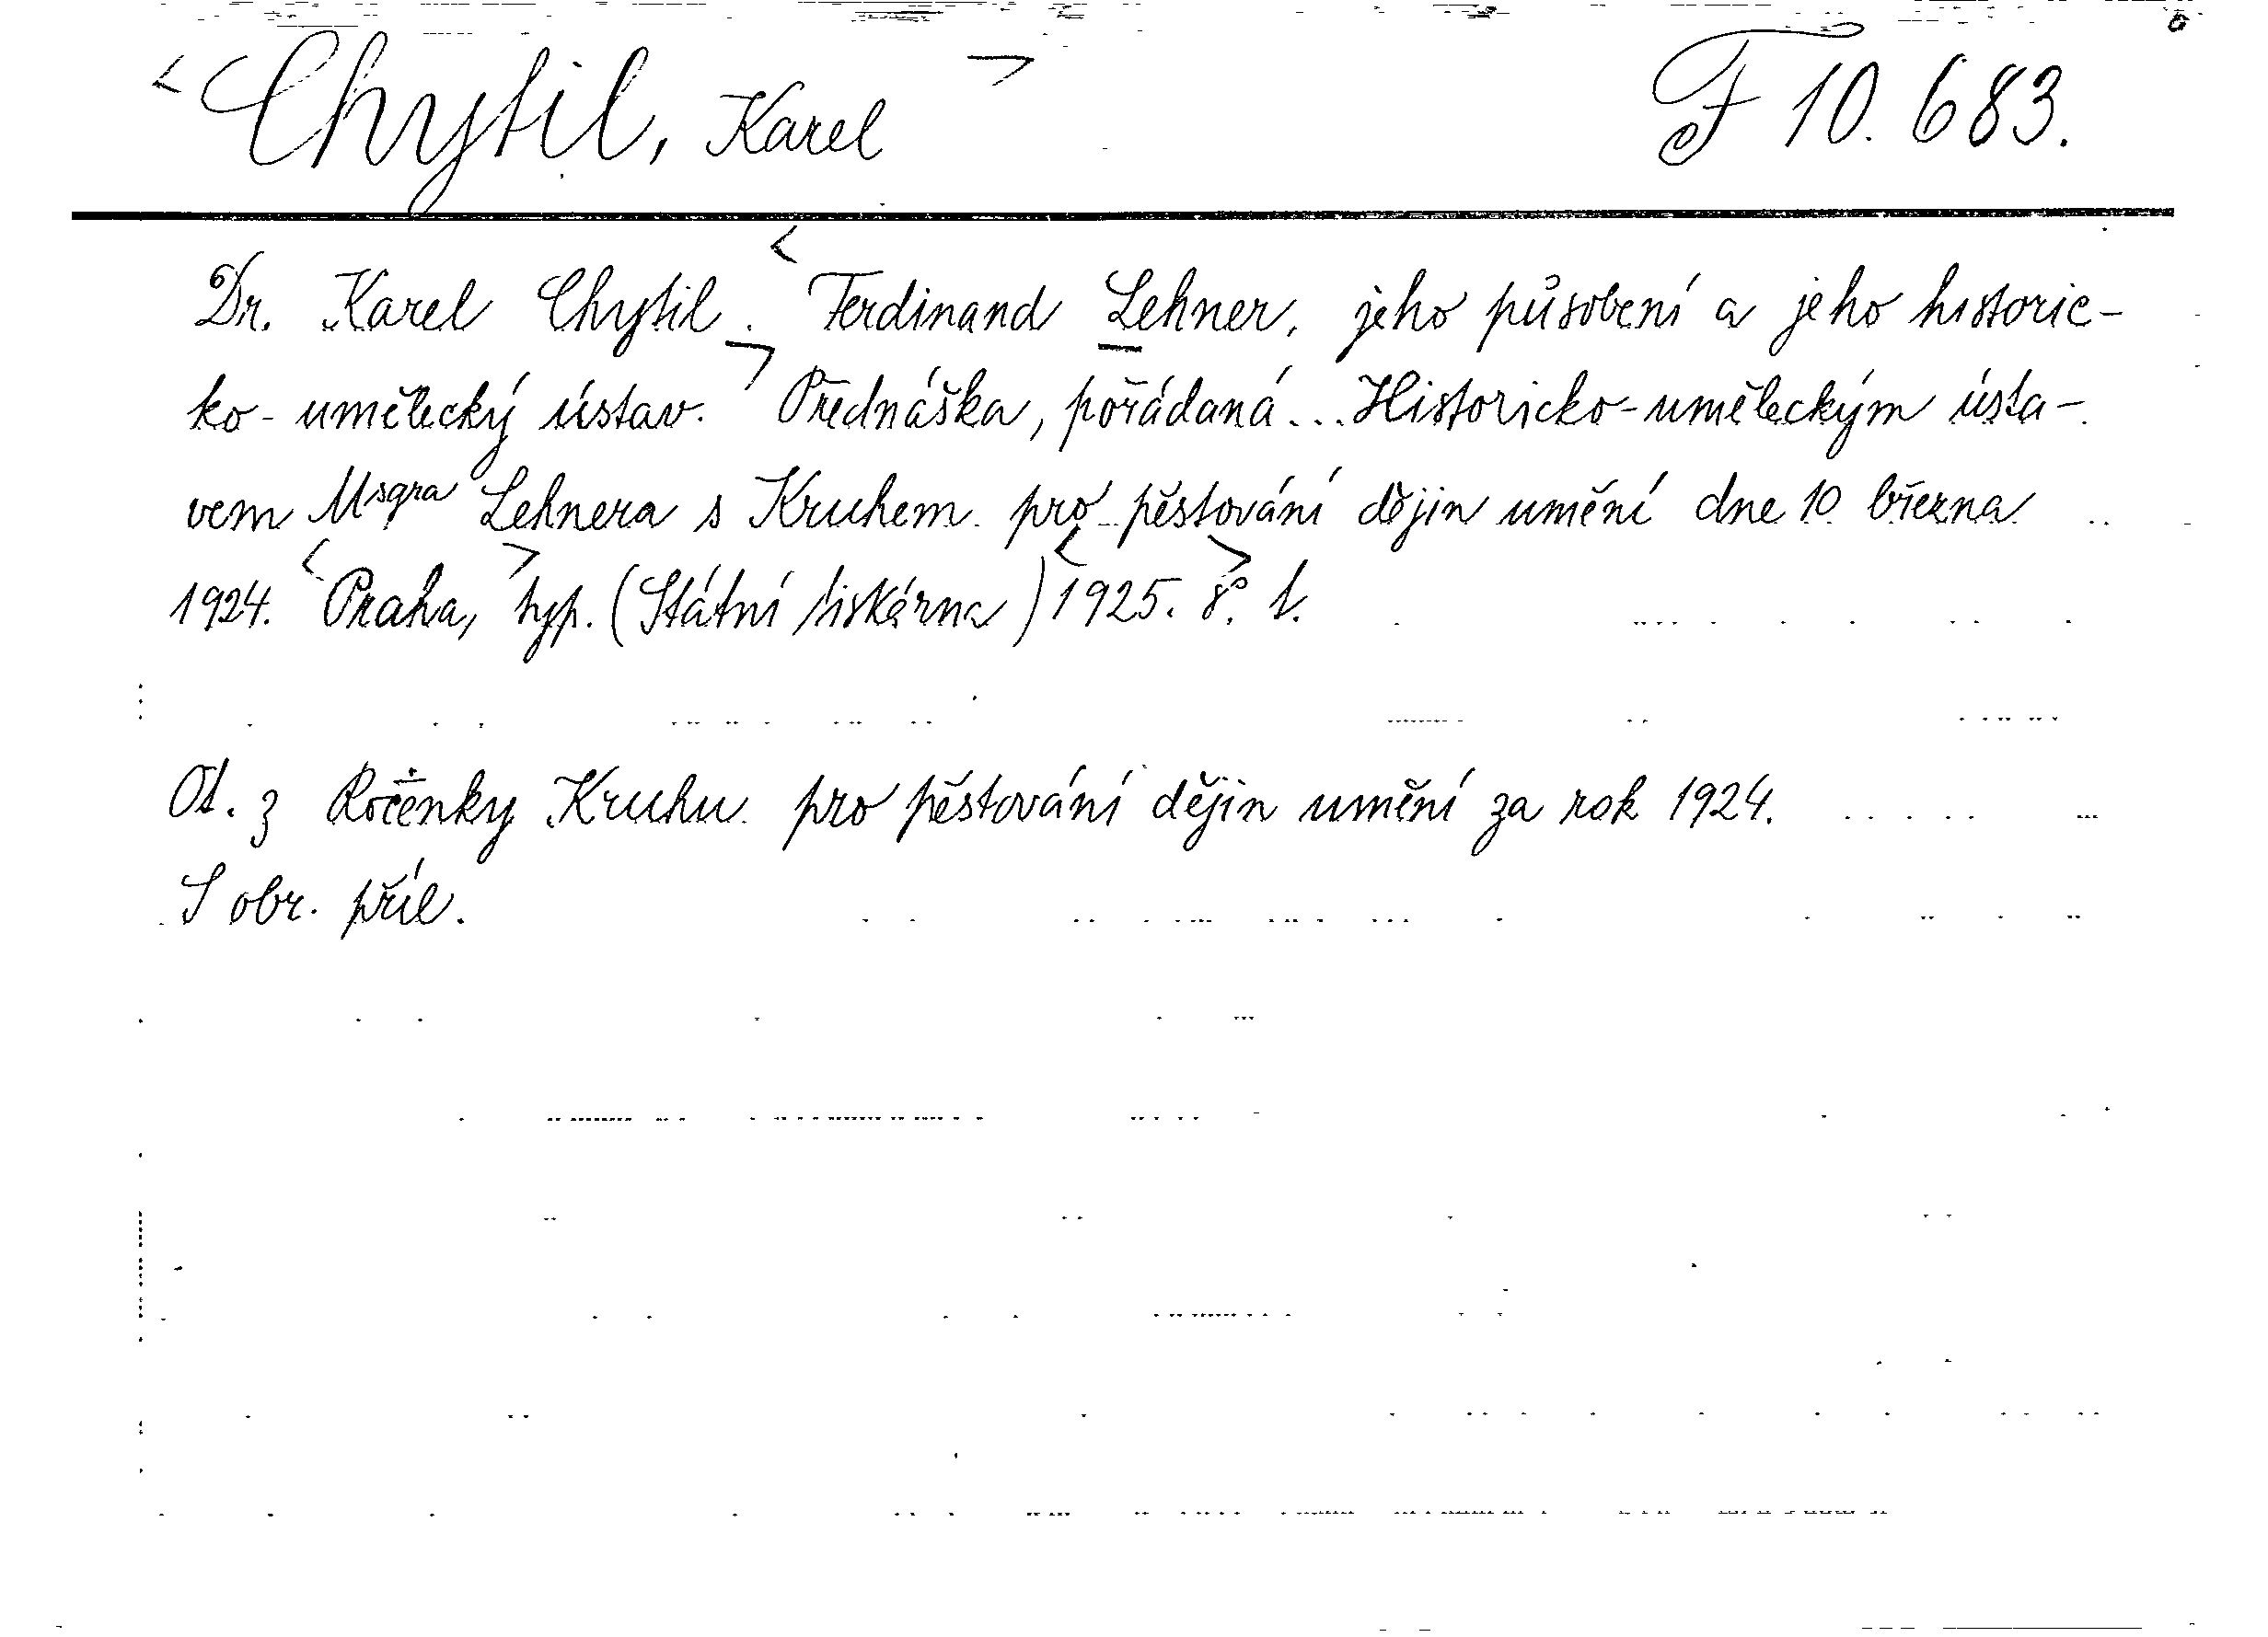 <Chytil, Karel> F 10.683.
Dr. Karel Chytil. <Ferdinand Lehner, jeho působení a jeho historic-
ko-umělecký ústav.> Přednáška, pořádaná... Historicko-uměleckým ústa-
vem Msgra Lehnera s Kruhem pro pěstování dějin umění dne 10 března
1924. <Praha,> typ. (Státní tiskárna) <1925.> 8°. t.
Ot. z Ročenky Kruhu pro pěstování dějin umění za rok 1924.
S obr. příl.